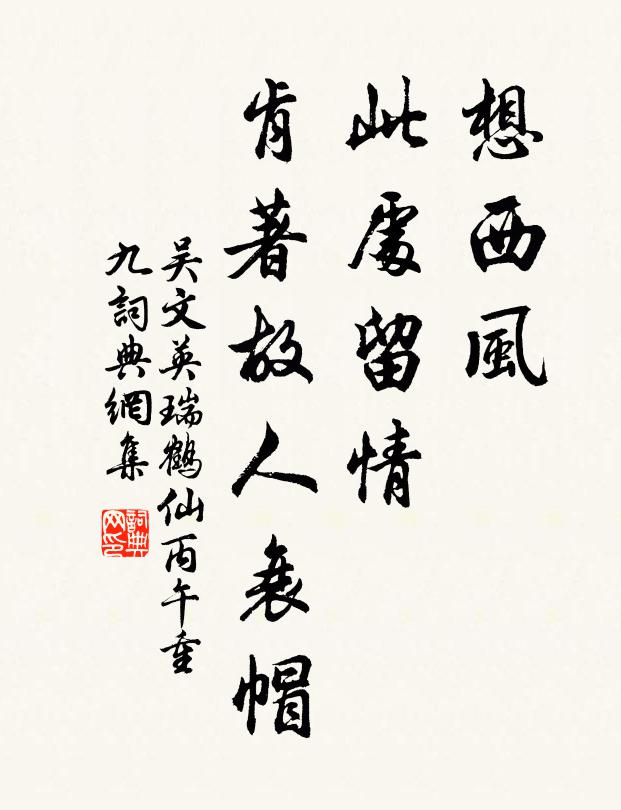 想西風
此處留情
肯著故人衰帽
吳文英瑞鶴仙丙午重
九詞典網集
詞典
网印